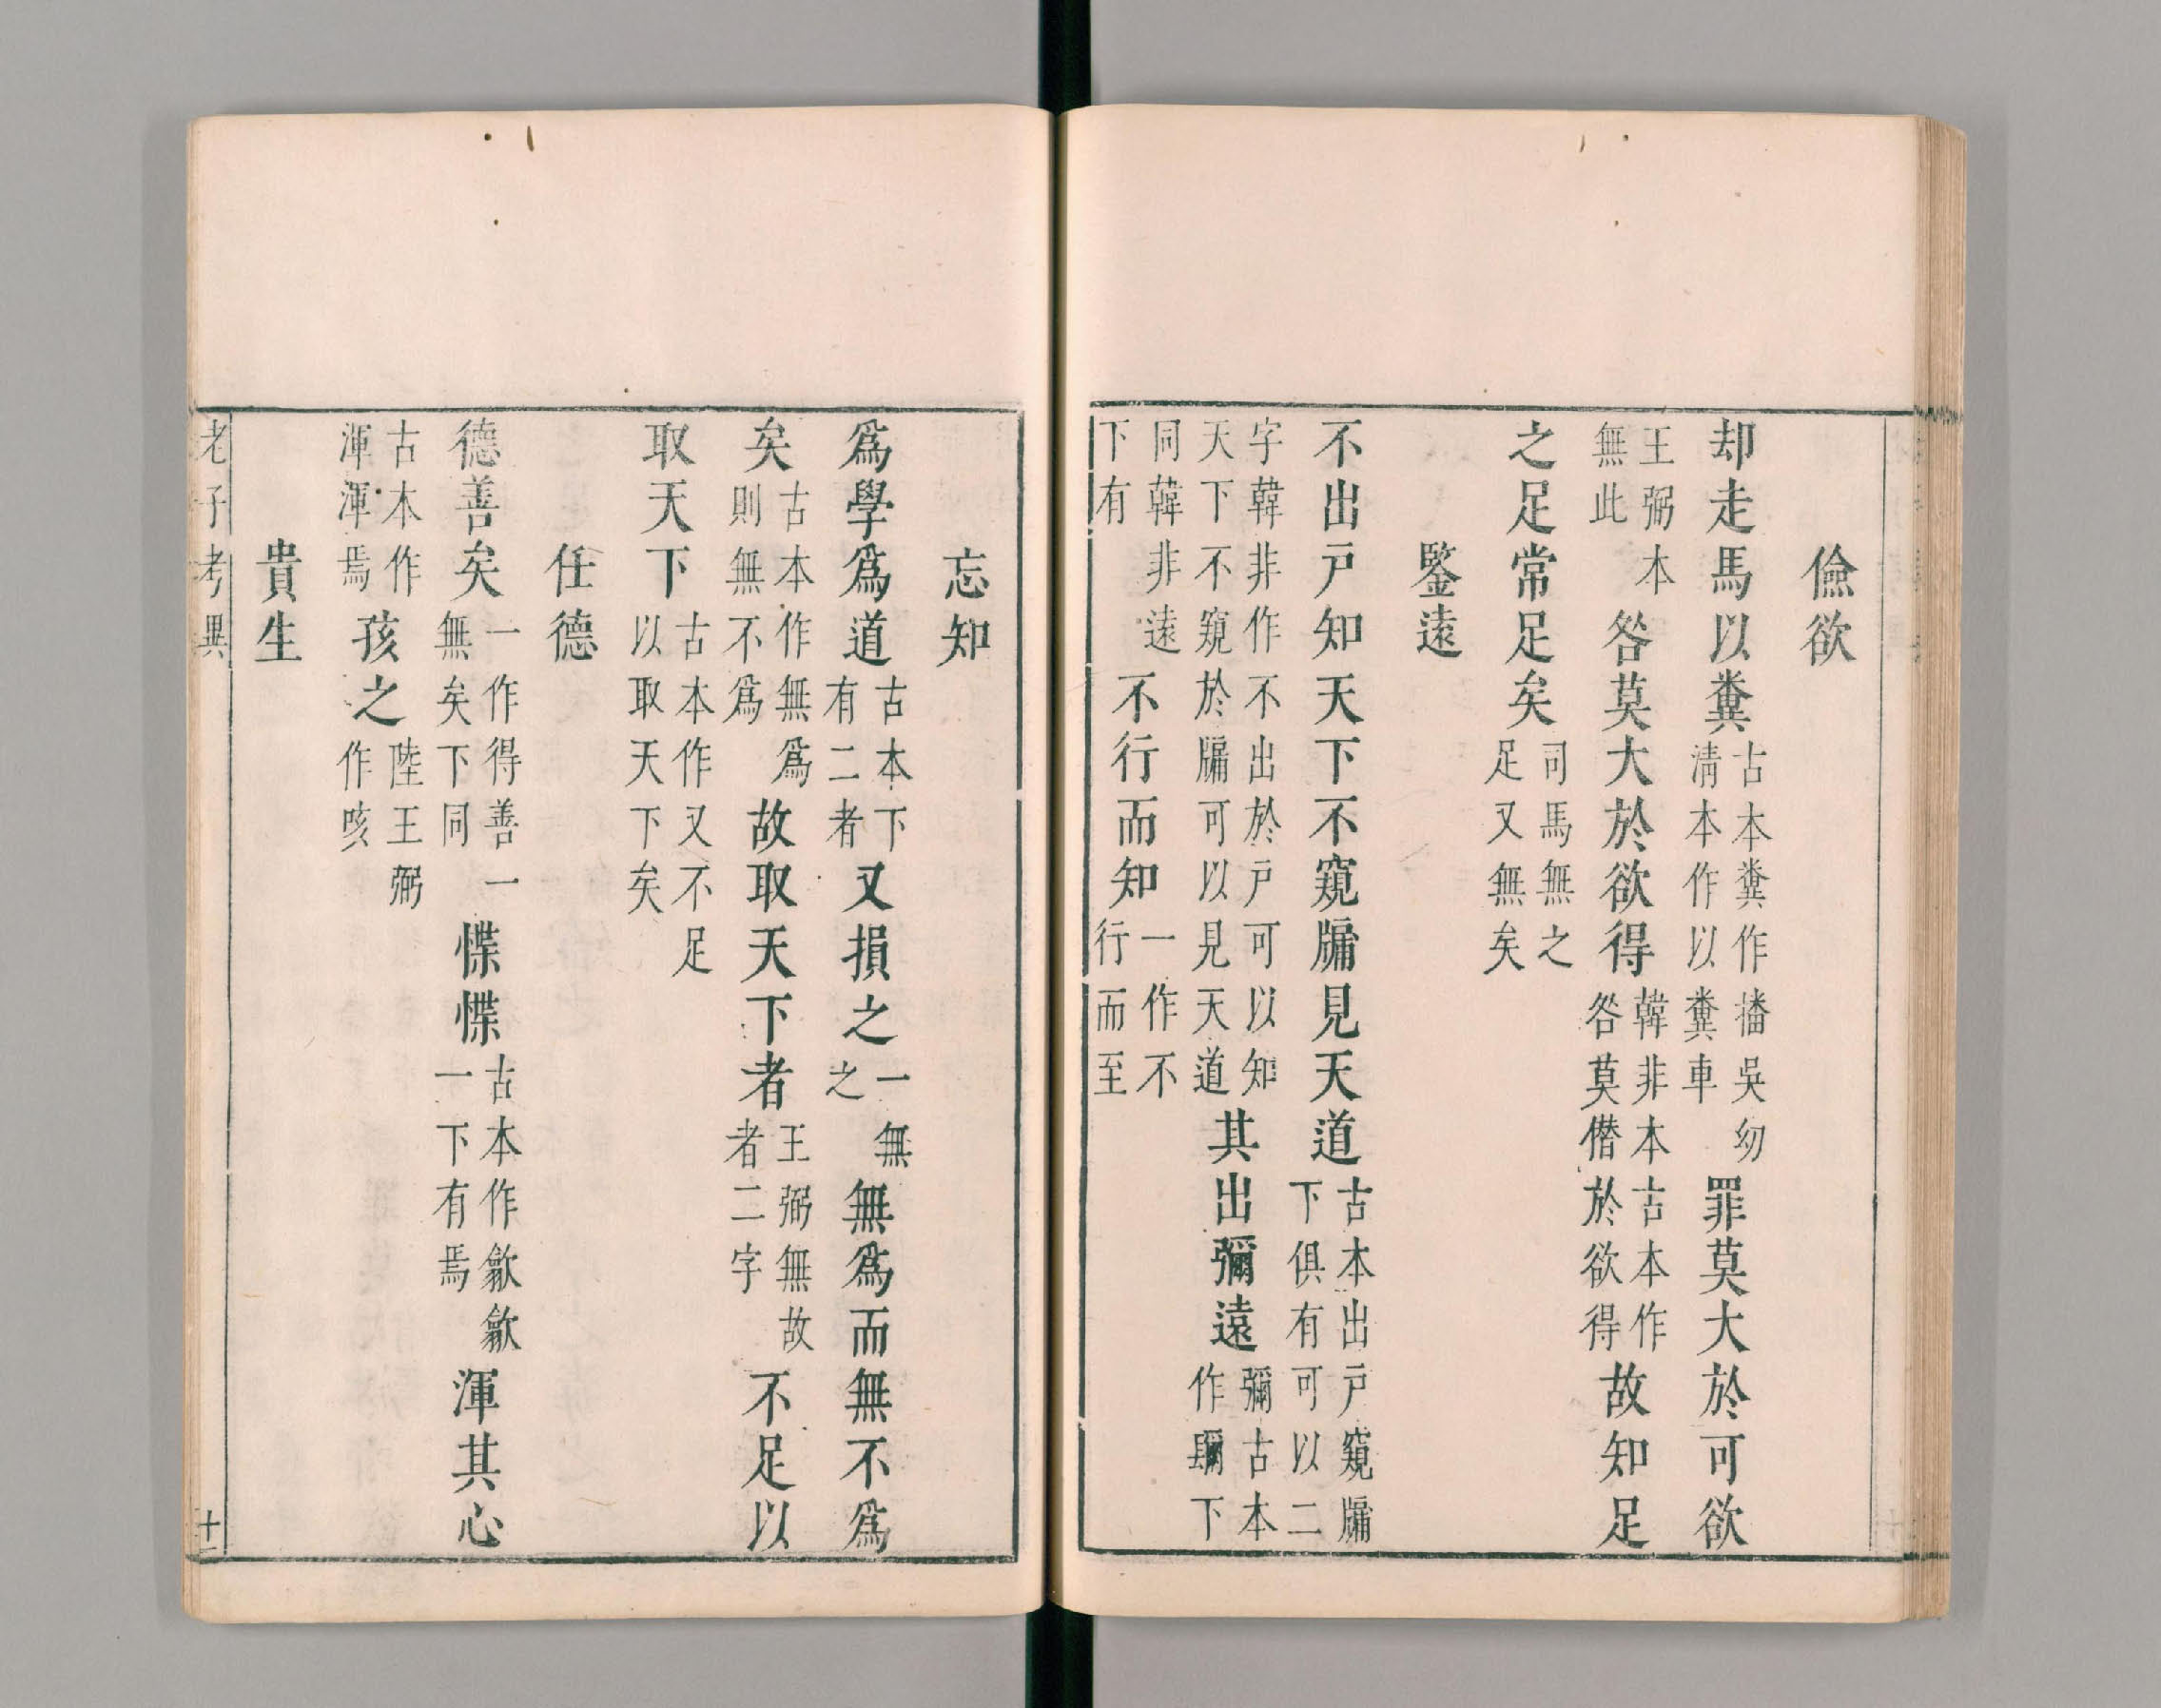 儉欲
却走馬以糞古本糞作播吳幼清本作以糞車罪莫大於可欲
王弼本無此咎莫大於欲得韓非本古本作咎莫憯於欲得故知足
之足常足矣司馬無之足又無矣
鑒遠
不出戸知天下不窺牖見天道古本出戸窺牖下俱有可以二
字韓非作不出於戸可以知天下不窺於牖可以見天道其出彌遠彌古本作镾下
同韓非遠下有不行而知一作不行而至
忘知
爲學爲道古本下有二者又損之一無之無爲而無不爲
矣古本作無爲則無不爲故取天下者王弼無故者二字不足以
取天下古本作又不足以取天下矣
任德
德善矣一作得善一無矣下同惵惵古本作歙歙一下有焉渾其心
古本作渾渾焉孩之陸王弼作咳
貴生
老子考異 十一